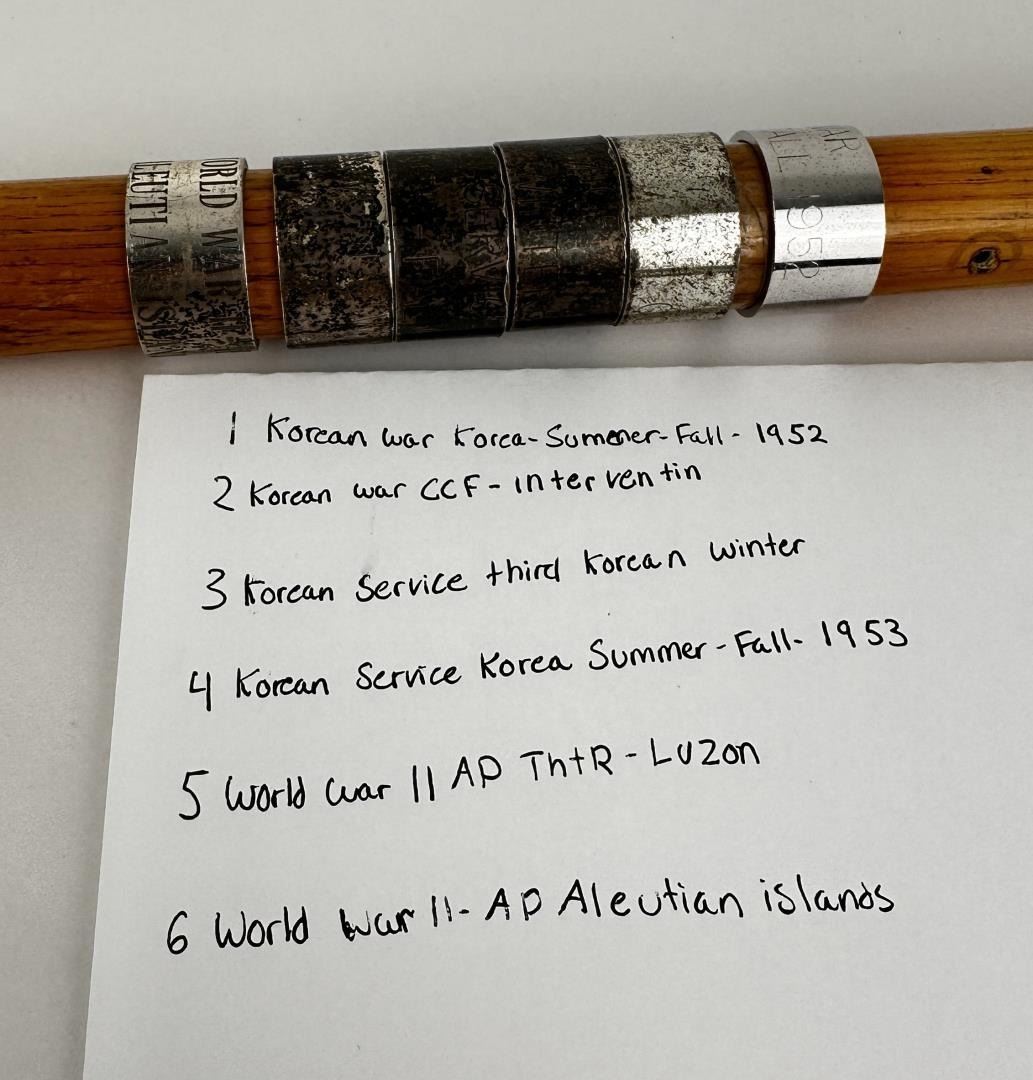 ORLD WAR
LEUTIAN ISLAN
AR
ALL 1952
1 Korean war Korea-Summer-Fall-1952
2 Korean war CCF-interventin
3 Korean Service third Korean winter
4 Korean Service Korea Summer-Fall-1953
5 World war II AP ThtR-Luzon
6 World War II-AP Aleutian islands